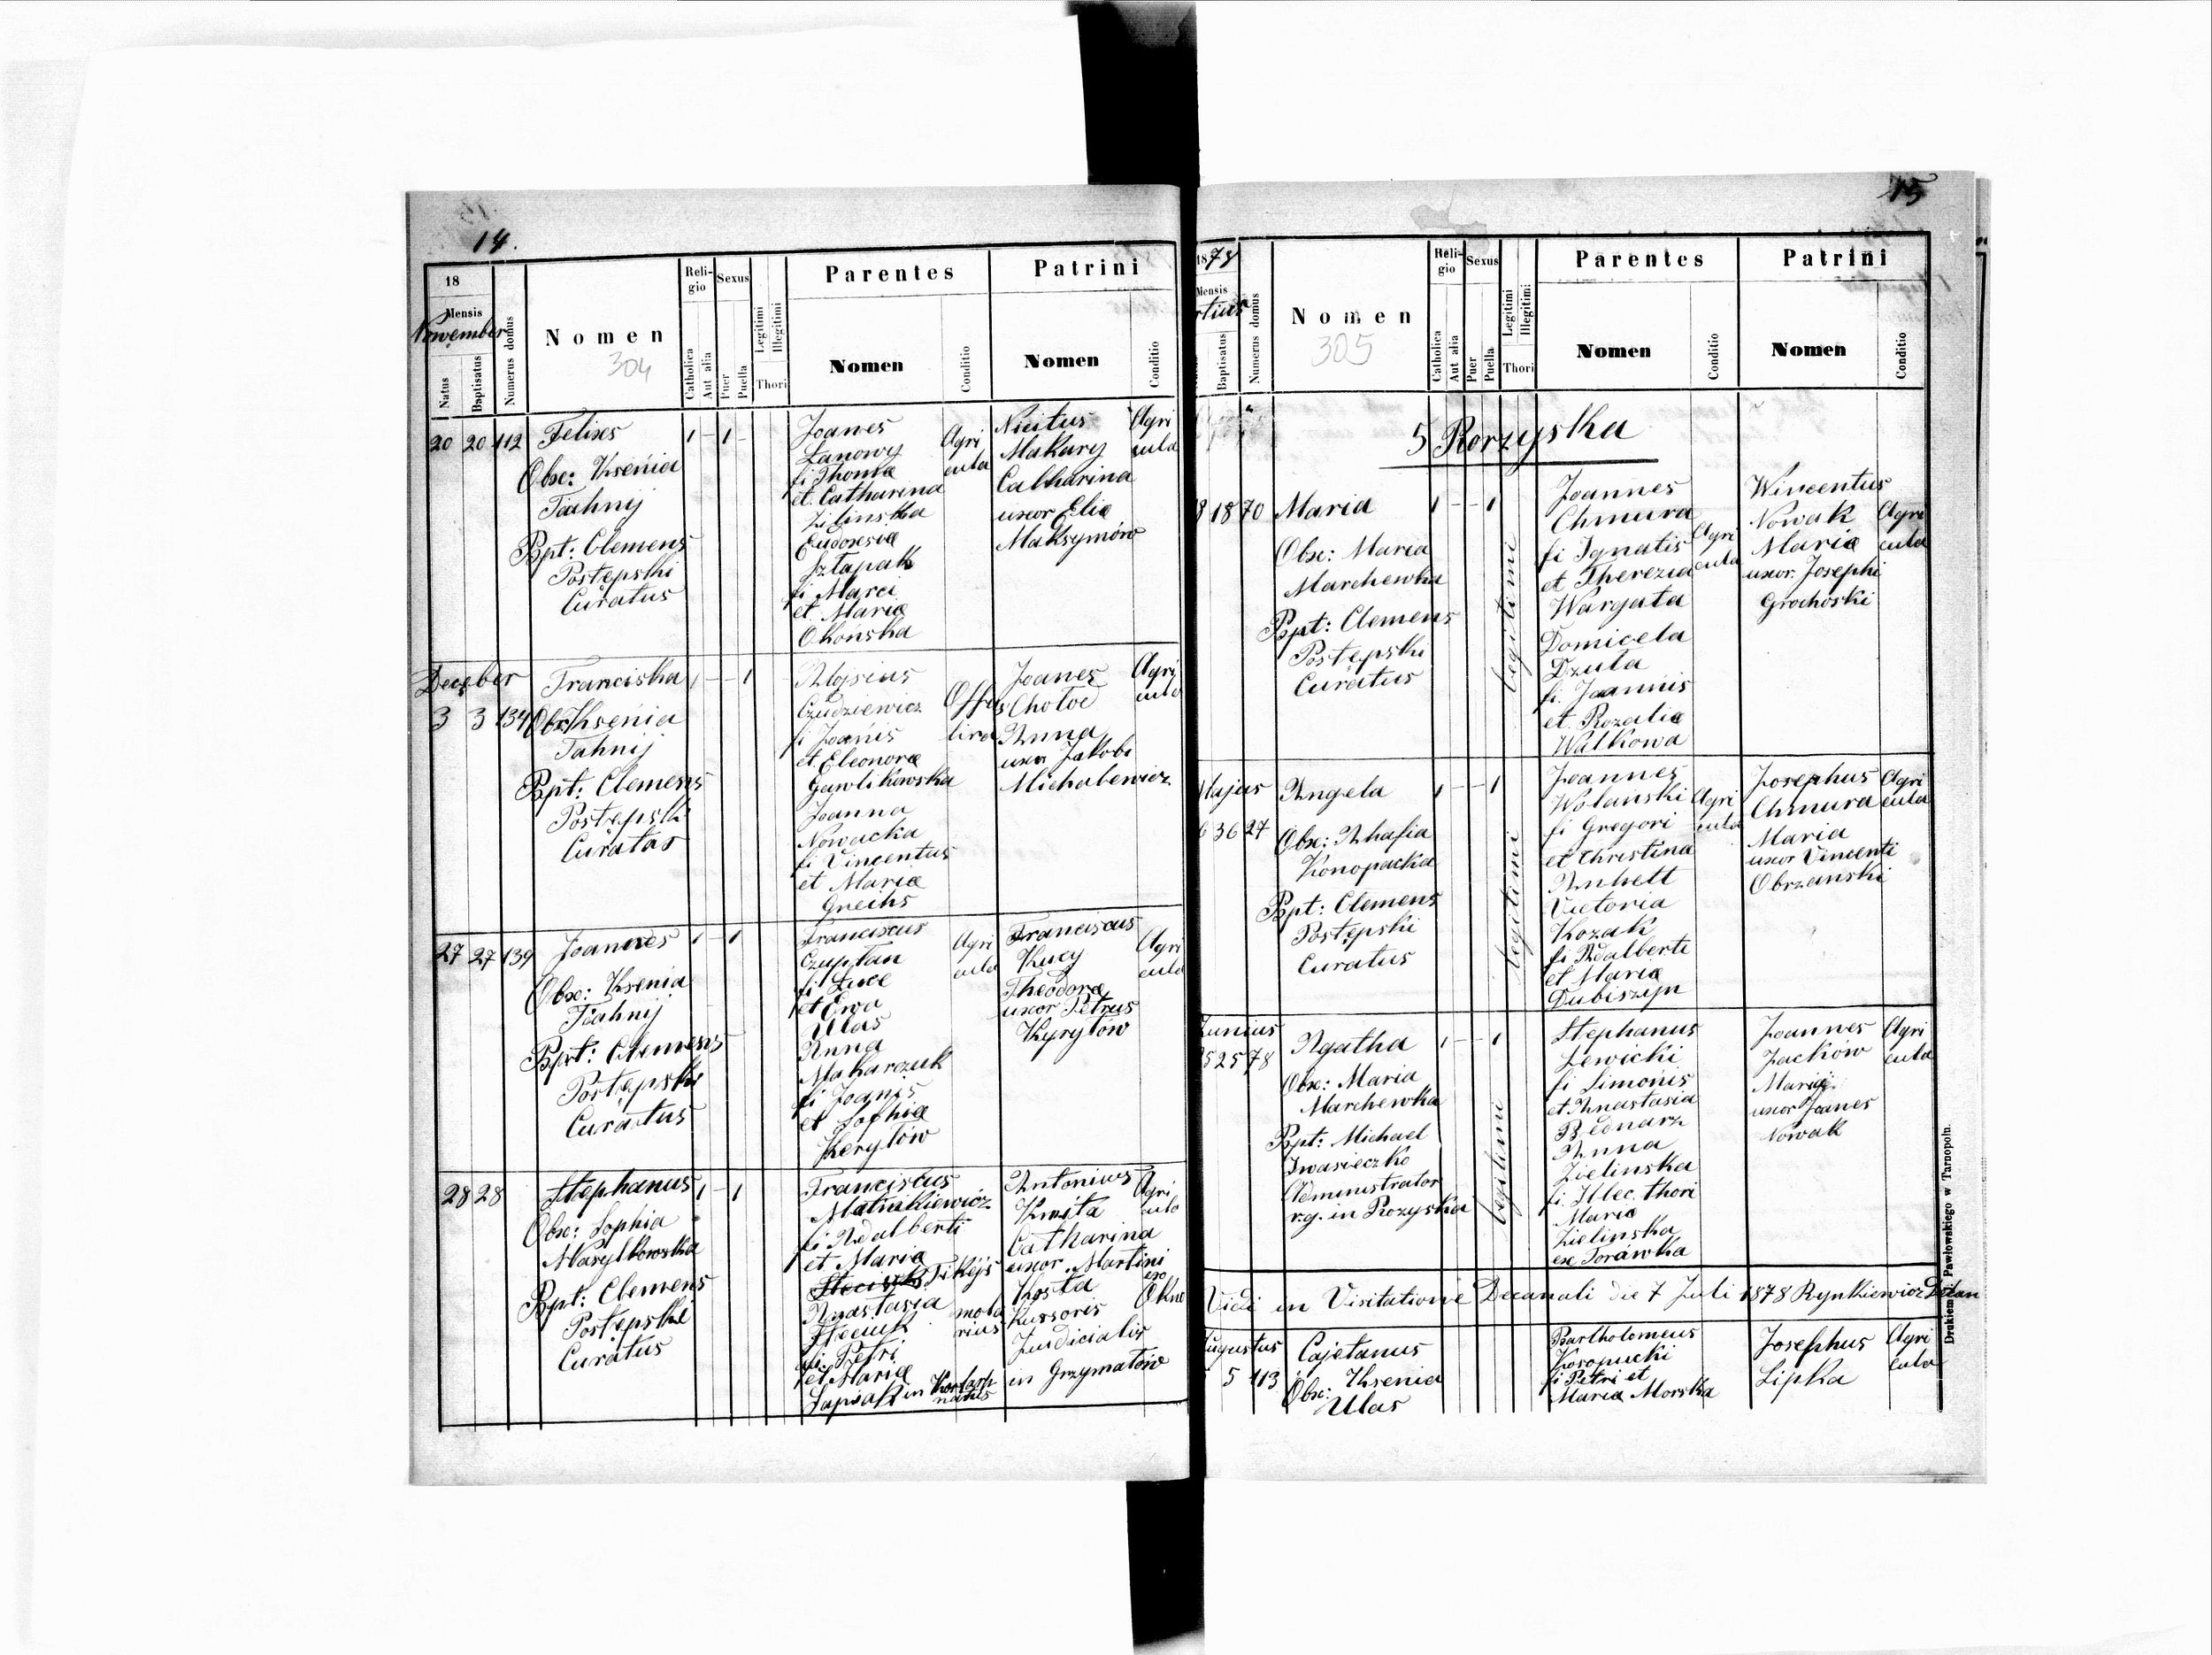 14.
18
Mensis
November
Natus
Baptisatus
Numerus domus
Nomen
304
Religio
Catholica
Aut alia
Sexus
Puer
Puella
Legitimi
Illegitimi
Thori
Parentes
Nomen
Conditio
Patrini
Nomen
Conditio
20 20 112
Felixs
Obse: Ksenia
Tkahnij
Bpt: Clemens
Postępski
Curatus
1 - 1 -
Joanes
Lanowy
fi Thoma
et Catharina
Zilinska
Eudoxesia
Sztapak
fi Marci
et Maria
Okońska
Agri
cula
Nicitus
Makary
Catharina
uxor Elia
Maksymów
Agri
cula
December
3 3 134
Franciska
Obs: Ksenia
Tahnij
Bpt: Clemens
Postępski
Curatus
1 - - 1
Alojsius
Czudziewicz
fi Joanis
et Eleonora
Gawlikowska
Joanna
Nowacka
fi Vincentus
et Maria
Gnechs
Joanes
Chołoc
Anna
uxor Jakobi
Michalewicz
Agri
cula
27 27 139
Joannes
Obse: Ksenia
Tkahnij
Bpt: Clemens
Postępski
Curatus
1 - 1
Franciscus
Czuptan
fi Luce
et Ewa
Ulas
Anna
Makarczuk
fi Joanis
et Sofhia
Kerylów
Agri
cula
Franciscus
Kucy
Theodora
uxor Petrus
Kyryłów
Agri
cula
28 28
Stephanus
Obse: Sophia
Wasylkowska
Bpt: Clemens
Postępski
Curatus
1 - 1
Franciscus
Matuskiewicz
fi Adalberti
et Maria
Tikejs
Anastasia
Steciuk
fi Petri
et Maria
Łapsak in
molarius
Antonius
Kwita
Catharina
uxor Martini
Kosta
Kussoris
Judicialis
in Grzymałów
Agri
cula
ex
Okno
15
1878
Mensis
rtius
Baptisatus
Numerus domus
Nomen
305
Religio
Catholica
Aut alia
Sexus
Puer
Puella
Legitimi
Illegitimi
Thori
Parentes
Nomen
Conditio
Patrini
Nomen
Conditio
5 Rorzyska
8 18 70
Maria
Obse: Maria
Marchewka
Bpt: Clemens
Postępski
Curatus
1 - - 1
legitimi
Joannes
Chmura
fi Ignatis
et Therezia
Wargata
Domicela
Dzula
fi Joannis
et Rozalia
Walkowa
Agri
cula
Wincentus
Nowak
Maria
uxor Josephi
Grochoski
Agri
cula
Majus
6 3627
Angela
Obse: Ahafia
Konopacka
Bpt: Clemens
Postępski
Curatus
1 - - 1
legitimi
Joannes
Wolański
fi Gregori
et Christina
Anhelt
Victoria
Kozak
fi Adalberti
et Maria
Dubiszyn
Agri
cula
Josephus
Chmura
Maria
uxor Vincenti
Obrzanski
Agri
cula
Junius
25 25 78
Agatha
Obse: Maria
Marchewka
Bpt: Michael
Iwasieczko
Administrator
r.g. in Rozyska
1 - - 1
legitimi
Stephanus
Lewicki
fi Simonis
et Anastasia
Bednarz
Anna
Zielinska
fi Illec. thori
Maria
Zielinska
ex Toráwka
Joannes
Jacków
Maria
uxor Joanes
Nowak
Agri
cula
Vidi in Visitatione Decanali die 7 Juli 1878 Rynkiewicz Dekan
Augustus
5 113
Cajetanus
Obse: Ksenia
Ulas
Bartholomeus
Kosopucki
fi Petri et
Maria Morska
Josephus
Lipka
Agri
cula
Drukiem Pawłowskiego w Tarnopolu.